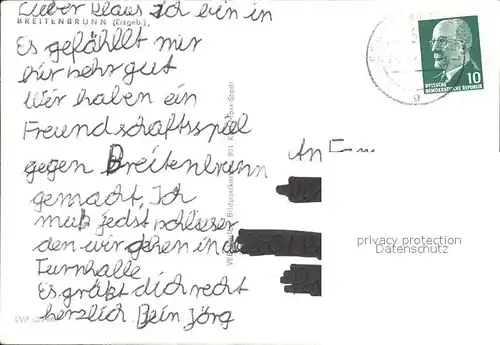 Lieber Klaus Ich bin in
BREITENBRUNN (Erzgeb.)
Es gefählt mir
hir sehr gut
Wir haben ein
Freundschaftsspiel
gegen Breitenbrunn
gemacht, Ich
muß jedst schlieser
den wir gehen in die
Turnhalle
Es grüßt dich recht
herzlich Dein Jörg
An
10
DEUTSCHE
DEMOKRATISCHE REPUBLIK
privacy protection
Datenschutz